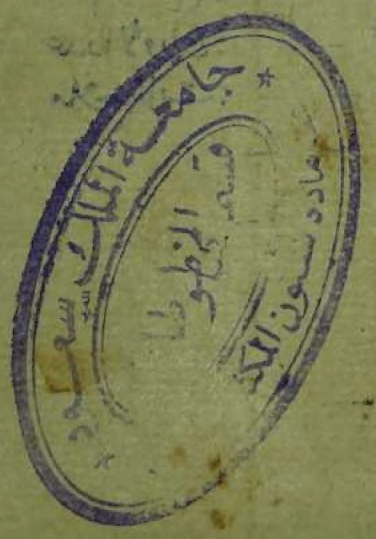 جامعة الملك سعود
قسم المخطوطا
عمادة شئون المكتبا